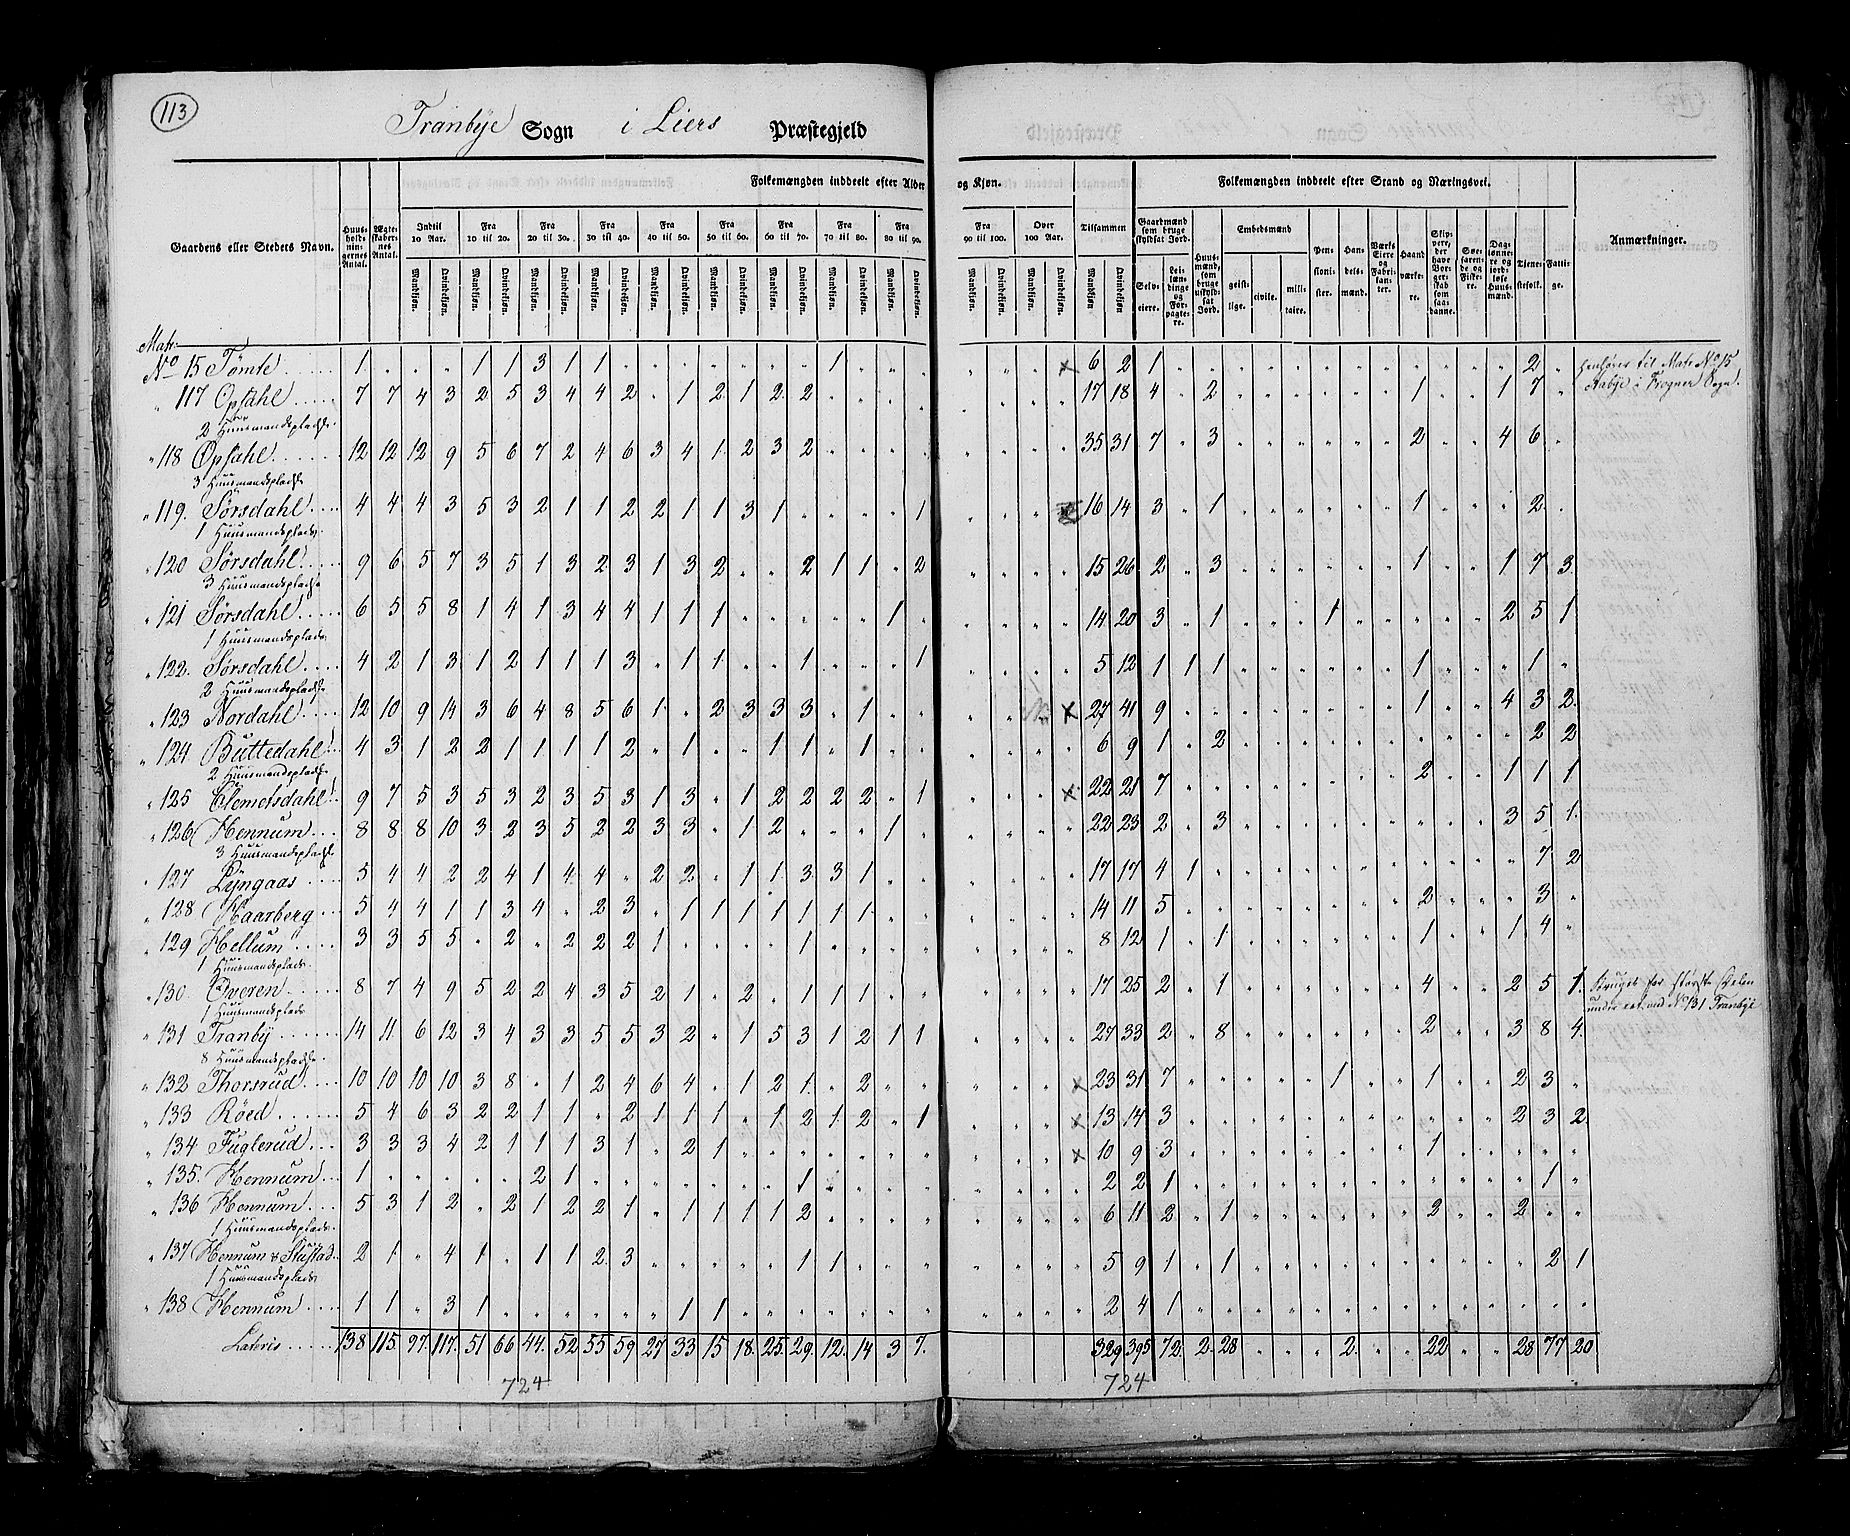 113
Tranbye Sogn i Liers Præstegjeld
Folkemængden inddeelt efter Alder og Kjøn.
Folkemængden inddeelt efter Stand og Næringsvei.
Gaardens eller Stedets Navn.
Huusholdningernes Antal.
Ægteskabernes Antal.
Indtil 10 Aar.
Fra 10 til 20.
Fra 20 til 30.
Fra 30 til 40.
Fra 40 til 50.
Fra 50 til 60.
Fra 60 til 70.
Fra 70 til 80.
Fra 80 til 90.
Fra 90 til 100.
Over 100 Aar.
Tilsammen
Mandkjøn. Qvindekjøn.
Gaardmænd som bruge skyldsat Jord.
Selveiere.
Leilændinge og Forpagtere.
Huusmænd, som bruge uskyldsat Jord.
Embedsmænd
geistlige. civile. militaire.
Pensionister.
Handelsmænd.
Værks Eiere og Fabrikanter.
Haandværkere.
Skippere, der have Borgerskab som saadanne.
Søefarende og Fiskere.
Daglønnere og jordløse Huusmænd.
Tjenestefolk.
Fattige.
Anmærkninger.
Matr:
No 15 Tømte 1 1 1 3 1 1 1 × 6 2 1 2 henhører til Matr No 15
117 Opsahl 7 7 4 3 2 5 3 4 4 2 1 2 1 2 2 17 18 4 2 1 1 7 Aabye i Frogner Sogn.
2 Huusmandspladse.
118 Opsahl 12 12 12 9 5 6 7 2 4 6 3 4 1 2 3 2 35 31 7 3 2 4 6
3 Huusmandspladse
119. Sørsdahl 4 4 4 3 5 3 2 1 1 2 2 1 1 3 1 1 16 14 3 1 1 2
1 Huusmandsplads.
120 Sørsdahl 9 6 5 7 3 5 1 3 2 3 1 3 2 2 1 1 2 15 26 2 3 1 1 7 3
3 Huusmandspladse
121 Sørsdahl 6 5 5 8 1 4 1 3 4 4 1 1 1 1 14 20 3 1 1 2 5 1
1 Huusmandsplads
122. Sørsdahl 4 2 1 3 1 2 1 1 1 3 1 1 1 1 5 12 1 1 1 1 1
2 Huusmandspladse
123 Nordahl 12 10 9 14 3 6 4 8 5 6 1 2 3 3 3 1 × 27 41 9 1 4 3 2
124 Buttedahl 4 3 1 2 2 1 1 1 1 2 1 1 1 1 6 9 1 2 2 2
2 Huusmandspladse
125 Clemetsdahl 9 7 5 3 5 3 2 3 5 3 1 3 1 2 2 2 2 1 × 22 21 7 2 1 1 1
126 Hennum 8 8 8 10 3 2 3 5 2 2 3 3 1 2 1 22 23 2 3 3 5 1
3 Huusmandspladse
127 Lyngaas 5 4 4 2 2 4 1 4 4 2 2 1 1 3 3 1 17 17 4 1 7 2
128 Haarberg 5 4 4 1 1 3 4 2 3 1 1 1 1 1 1 1 14 11 5 2 3
129 Hellum 3 3 5 5 2 2 2 2 1 1 8 12 1 1 1 1 4
1 Huusmandsplads.
130. Overen 8 7 4 9 5 2 2 4 3 5 2 1 2 1 1 1 17 25 2 1 4 2 5 1. Bruges for største Delen
1 Huusmandsplads under eet med No 131 Tranbye
131 Tranby 14 11 6 12 3 4 3 3 5 5 3 2 1 5 3 1 2 1 1 27 33 2 8 2 3 8 4
8 Huusmandspladse.
132 Thorsrud 10 10 10 10 3 8 1 2 4 6 4 1 2 1 2 × 23 31 7 1 1 2 3
133 Röed 5 4 6 3 2 2 1 1 2 1 1 1 1 2 1 2 1 × 13 14 3 2 3 2
134 Fuglerud 3 3 3 4 2 1 1 1 3 1 2 1 × 10 9 3 1
135. Hennum 1 2 1 1 2 2 1 1
136 Hennum 5 3 1 2 2 1 2 2 1 1 1 1 1 2 6 11 2 1 2 2
1 Huusmandsplads.
137 Hennum & Stustad 2 1 4 1 1 1 2 3 1 1 5 9 1 1 2 1
1 Huusmandsplads
138 Hennum 1 1 3 1 1 1 2 4 1
Lateris 138 115 97 117 51 66 44 52 55 59 27 33 15 18 25 29 12 14 3 7 329 395 72 2 28 2 22 28 77 20
724 724